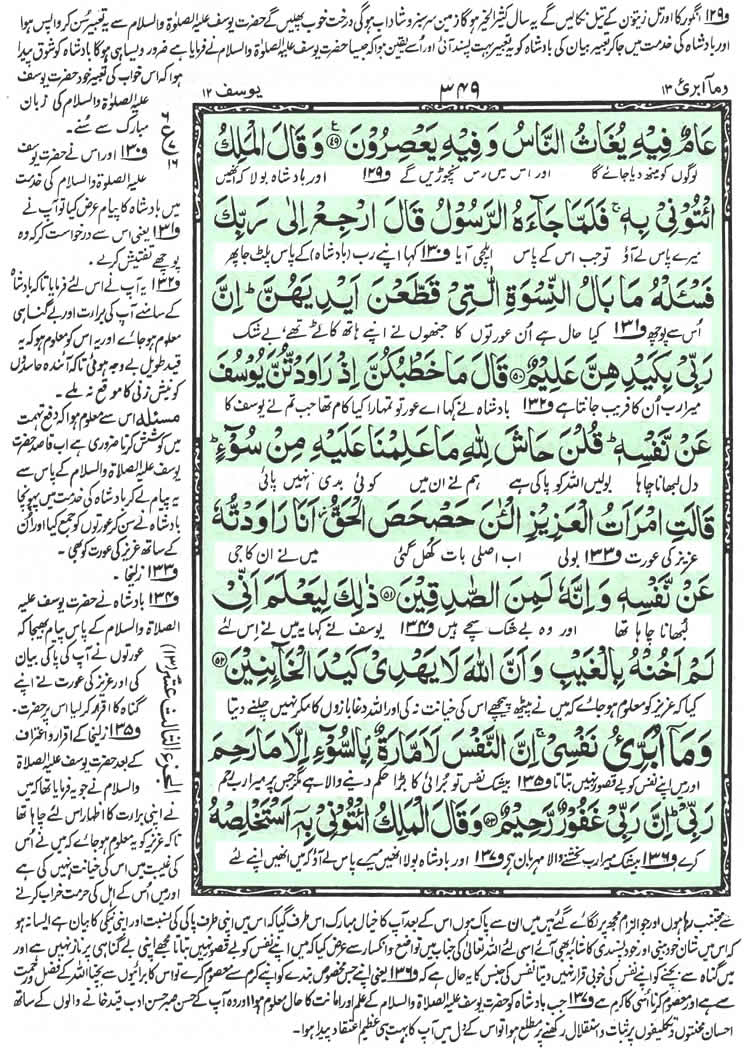 و۱۲۹ انگور کا اور تل زیتون کے تیل نکالیں گے یہ سال کثیر الخیر ہوگا زمین سرسبز و شاداب ہوگی درخت خوب پھلیں گے حضرت یوسف علیہ الصلوٰۃ والسلام سے یہ تعبیر سن کر واپس ہوا
اور بادشاہ کی خدمت میں جا کر تعبیر بیان کی بادشاہ کو یہ تعبیر بہت پسند آئی اور اُسے یقین ہوا کہ جیسا حضرت یوسف علیہ الصلوٰۃ والسلام نے فرمایا ہے ضرور ویسا ہی ہوگا بادشاہ کو شوق پیدا
ہوا کہ اس خواب کی تعبیر خود حضرت یوسف
علیہ الصلوٰۃ والسلام کی زبان
مبارک سے سُنے۔
و۱۳۰ اور اس نے حضرت یوسف
علیہ الصلوٰۃ والسلام کی خدمت
میں بادشاہ کا پیام عرض کیا تو آپ نے
و۱۳۱ یعنی اس سے درخواست کر کہ وہ
پوچھے تفتیش کرے۔
و۱۳۲ یہ آپ نے اس لئے فرمایا تاکہ بادشاہ
کے سامنے آپ کی برارت اور بے گناہی
معلوم ہو جائے اور یہ اس کو معلوم ہو کہ یہ
قید طویل بے وجہ ہوئی تاکہ آئندہ حاسدوں
کو نیش زنی کا موقع نہ ملے۔
مسئلہ اس سے معلوم ہوا کہ دفع تہمت
میں کوشش کرنا ضروری ہے اب قاصد حضرت
یوسف علیہ الصلاۃ والسلام کے پاس سے
یہ پیام لے کر بادشاہ کی خدمت میں پہونچا
بادشاہ نے سن کر عورتوں کو جمع کیا اور اُن
کے ساتھ عزیز کی عورت کو بھی۔
و۱۳۳ زلیخا۔
و۱۳۴ بادشاہ نے حضرت یوسف علیہ
الصلاۃ والسلام کے پاس پیام بھیجا کہ
عورتوں نے آپ کی پاکی بیان
کی اور عزیز کی عورت نے اپنے
گناہ کا اقرار کر لیا اس پر حضرت۔
و۱۳۵ زلیخا کے اقرار و اعتراف
کے بعد حضرت یوسف علیہ الصلاۃ
والسلام نے جو یہ فرمایا تھا کہ میں
نے اپنی برارت کا اظہار اس لئے چاہا تھا
تاکہ عزیز کو یہ معلوم ہو جائے کہ میں نے اُس
کی غیبت میں اس کی خیانت نہیں کی ہے
اور میں اُس کے اہل کی حرمت خراب کرنے
یوسف ۱۲
۳۴۹
وما ابرئ ۱۳
ع ۶ ۷ ۱۶
عَامٌ فِيْهِ يُغَاثُ النَّاسُ وَفِيْهِ يَعْصِرُوْنَ ﴿۴۹﴾ وَقَالَ الْمَلِكُ
لوگوں کو مینھ دیا جائے گا اور اس میں رس نچوڑیں گے و۱۲۹ اور بادشاہ بولا کہ انھیں
ائْتُوْنِيْ بِهٖ ۚ فَلَمَّا جَآءَهُ الرَّسُوْلُ قَالَ ارْجِعْ اِلٰى رَبِّكَ
میرے پاس لے آؤ تو جب اس کے پاس ایلچی آیا و۱۳۰ کہا اپنے رب (بادشاہ) کے پاس پلٹ جا پھر
فَسْـَٔلْهُ مَا بَالُ النِّسْوَةِ الّٰتِيْ قَطَّعْنَ اَيْدِيَهُنَّ ؕ اِنَّ
اُس سے پوچھ و۱۳۱ کیا حال ہے اُن عورتوں کا جنھوں نے اپنے ہاتھ کاٹے تھے، بے شک
رَبِّيْ بِكَيْدِهِنَّ عَلِيْمٌ ﴿۵۰﴾ قَالَ مَا خَطْبُكُنَّ اِذْ رَاوَدْتُّنَّ يُوْسُفَ
میرا رب اُن کا فریب جانتا ہے و۱۳۲ بادشاہ نے کہا اے عورتو تمہارا کیا کام تھا جب تم نے یوسف کا
عَنْ نَّفْسِهٖ ؕ قُلْنَ حَاشَ لِلّٰهِ مَا عَلِمْنَا عَلَيْهِ مِنْ سُوْٓءٍ ؕ
دل لبھانا چاہا بولیں اللہ کو پاکی ہے ہم نے ان میں کوئی بدی نہیں پائی
قَالَتِ امْرَاَتُ الْعَزِيْزِ الْـٰٔنَ حَصْحَصَ الْحَقُّ ۫ اَنَا رَاوَدْتُّهٗ
عزیز کی عورت و۱۳۳ بولی اب اصلی بات کھل گئی میں نے ان کا جی
عَنْ نَّفْسِهٖ وَاِنَّهٗ لَمِنَ الصّٰدِقِيْنَ ﴿۵۱﴾ ذٰلِكَ لِيَعْلَمَ اَنِّيْ
لُبھانا چاہا تھا اور وہ بے شک سچے ہیں و۱۳۴ یوسف نے کہا یہ میں نے اس لئے
لَمْ اَخُنْهُ بِالْغَيْبِ وَاَنَّ اللّٰهَ لَا يَهْدِيْ كَيْدَ الْخَآئِنِيْنَ ﴿۵۲﴾
کیا کہ عزیز کو معلوم ہو جائے کہ میں نے پیٹھ پیچھے اس کی خیانت نہ کی اور اللہ دغا بازوں کا مکر نہیں چلنے دیتا
الجزء الثالث عشر (۱۳)
وَمَاۤ اُبَرِّئُ نَفْسِيْ ۚ اِنَّ النَّفْسَ لَاَمَّارَةٌۢ بِالسُّوْٓءِ اِلَّا مَا رَحِمَ
اور میں اپنے نفس کو بے قصور نہیں بتاتا و۱۳۵ بیشک نفس تو برائی کا بڑا حکم دینے والا ہے مگر جس پر میرا رب رحم
رَبِّيْ ؕ اِنَّ رَبِّيْ غَفُوْرٌ رَّحِيْمٌ ﴿۵۳﴾ وَقَالَ الْمَلِكُ ائْتُوْنِيْ بِهٖۤ اَسْتَخْلِصْهُ
کرے و۱۳۶ بیشک میرا رب بخشنے والا مہربان ہے و۱۳۷ اور بادشاہ بولا انھیں میرے پاس لے آؤ کہ میں انھیں اپنے لئے
سے مجتنب رہا ہوں اور جو الزام مجھ پر لگائے گئے ہیں میں ان سے پاک ہوں اس کے بعد آپ کا خیال مبارک اس طرف گیا کہ اس میں اپنی طرف پاکی کی نسبت اور اپنی نیکی کا بیان ہے ایسا نہ ہو
کہ اس میں شان خود بینی اور خود پسندی کا شائبہ بھی آئے اسی لئے اللہ تعالیٰ کی جناب میں تواضع و انکسار سے عرض کیا کہ میں اپنے نفس کو بے قصور نہیں بتاتا مجھے اپنی بے گناہی پر ناز نہیں ہے اور
میں گناہ سے بچنے کو اپنے نفس کی خوبی قرار نہیں دیتا نفس کی جنس کا یہ حال ہے کہ و۱۳۶ یعنی اپنے جس مخصوص بندے کو اپنے کرم سے معصوم کرے تو اس کا برائیوں سے بچنا اللہ کے فضل و رحمت
سے ہے اور معصوم کرنا اسی کا کرم ہے و۱۳۷ جب بادشاہ کو حضرت یوسف علیہ الصلاۃ والسلام کے علم اور امانت کا حال معلوم ہوا اور وہ آپ کے حسن صبر حسن ادب قید خانے والوں کے ساتھ
احسان محنتوں و تکلیفوں پر ثبات و استقلال رکھنے پر مطلع ہوا تو اس کے دل میں آپ کا بہت ہی عظیم اعتقاد پیدا ہوا۔